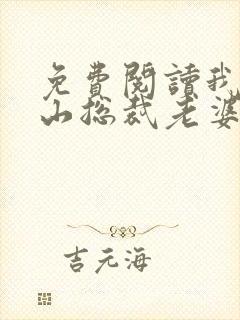 免費閱讀我
山总裁老婆
吉元海